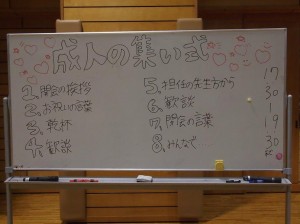 成人の集い式
1. 開会の挨拶
2. お祝いの言葉
3. 乾杯
4. 歓談
5. 担任の先生方から
6. 歓談
7. 閉会の言葉
8. みんなで
17
30
1
19
30